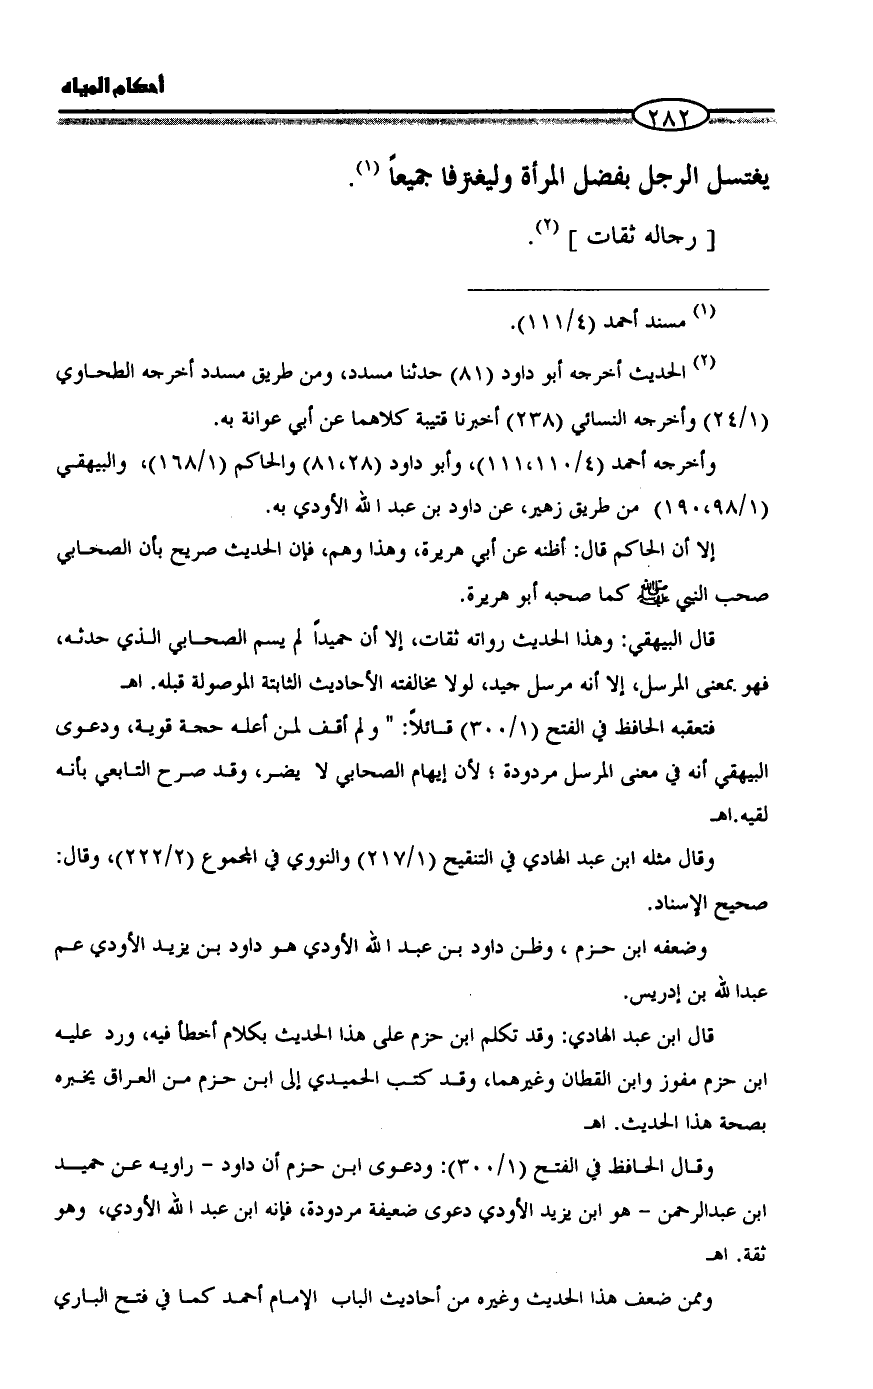 أحكام المياه
٢٨٢
يغتسل الرجل بفضل المرأة وليغترفا جميعاً (١).
[ رجاله ثقات ] (٢).
(١) مسند أحمد (١١١/٤).
(٢) الحديث أخرجه أبو داود (٨١) حدثنا مسدد، ومن طريق مسدد أخرجه الطحاوي
(٢٤/١) وأخرجه النسائي (٢٣٨) أخبرنا قتيبة كلاهما عن أبي عوانة به.
وأخرجه أحمد (١١١،١١٠/٤)، وأبو داود (٨١،٢٨) والحاكم (١٦٨/١)، والبيهقي
(١٩٠،٩٨/١) من طريق زهير، عن داود بن عبد الله الأودي به.
إلا أن الحاكم قال: أظنه عن أبي هريرة، وهذا وهم، فإن الحديث صريح بأن الصحابي
صحب النبي ﷺ كما صحبه أبو هريرة.
قال البيهقي: وهذا الحديث رواته ثقات، إلا أن حميداً لم يسم الصحابي الذي حدثه،
فهو بمعنى المرسل، إلا أنه مرسل جيد، لولا مخالفته الأحاديث الثابتة الموصولة قبله. اهـ
فتعقبه الحافظ في الفتح (٣٠٠/١) قائلاً: " ولم أقف لمن أعله حجة قوية، ودعوى
البيهقي أنه في معنى المرسل مردودة ؛ لأن إبهام الصحابي لا يضر، وقد صرح التابعي بأنه
لقيه.اهـ
وقال مثله ابن عبد الهادي في التنقيح (٢١٧/١) والنووي في المجموع (٢٢٢/٢)، وقال:
صحيح الإسناد.
وضعفه ابن حزم ، وظن داود بن عبد الله الأودي هو داود بن يزيد الأودي عم
عبدالله بن إدريس.
قال ابن عبد الهادي: وقد تكلم ابن حزم على هذا الحديث بكلام أخطأ فيه، ورد عليه
ابن حزم مفوز وابن القطان وغيرهما، وقد كتب الحميدي إلى ابن حزم من العراق يخبره
بصحة هذا الحديث. اهـ
وقال الحافظ في الفتح (٣٠٠/١): ودعوى ابن حزم أن داود – راويه عن حميد
ابن عبدالرحمن – هو ابن يزيد الأودي دعوى ضعيفة مردودة، فإنه ابن عبد الله الأودي، وهو
ثقة. اهـ
وممن ضعف هذا الحديث وغيره من أحاديث الباب الإمام أحمد كما في فتح الباري